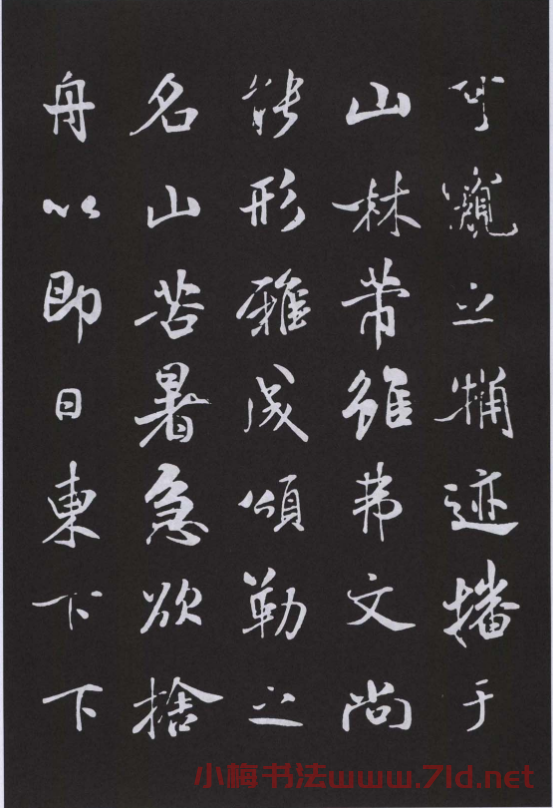 可窺之迹播于
山林芾雖弗文尚
能形雅成頌勒之
名山苦暑急欲捨
舟以即日東下下
小梅书法www.7ld.net